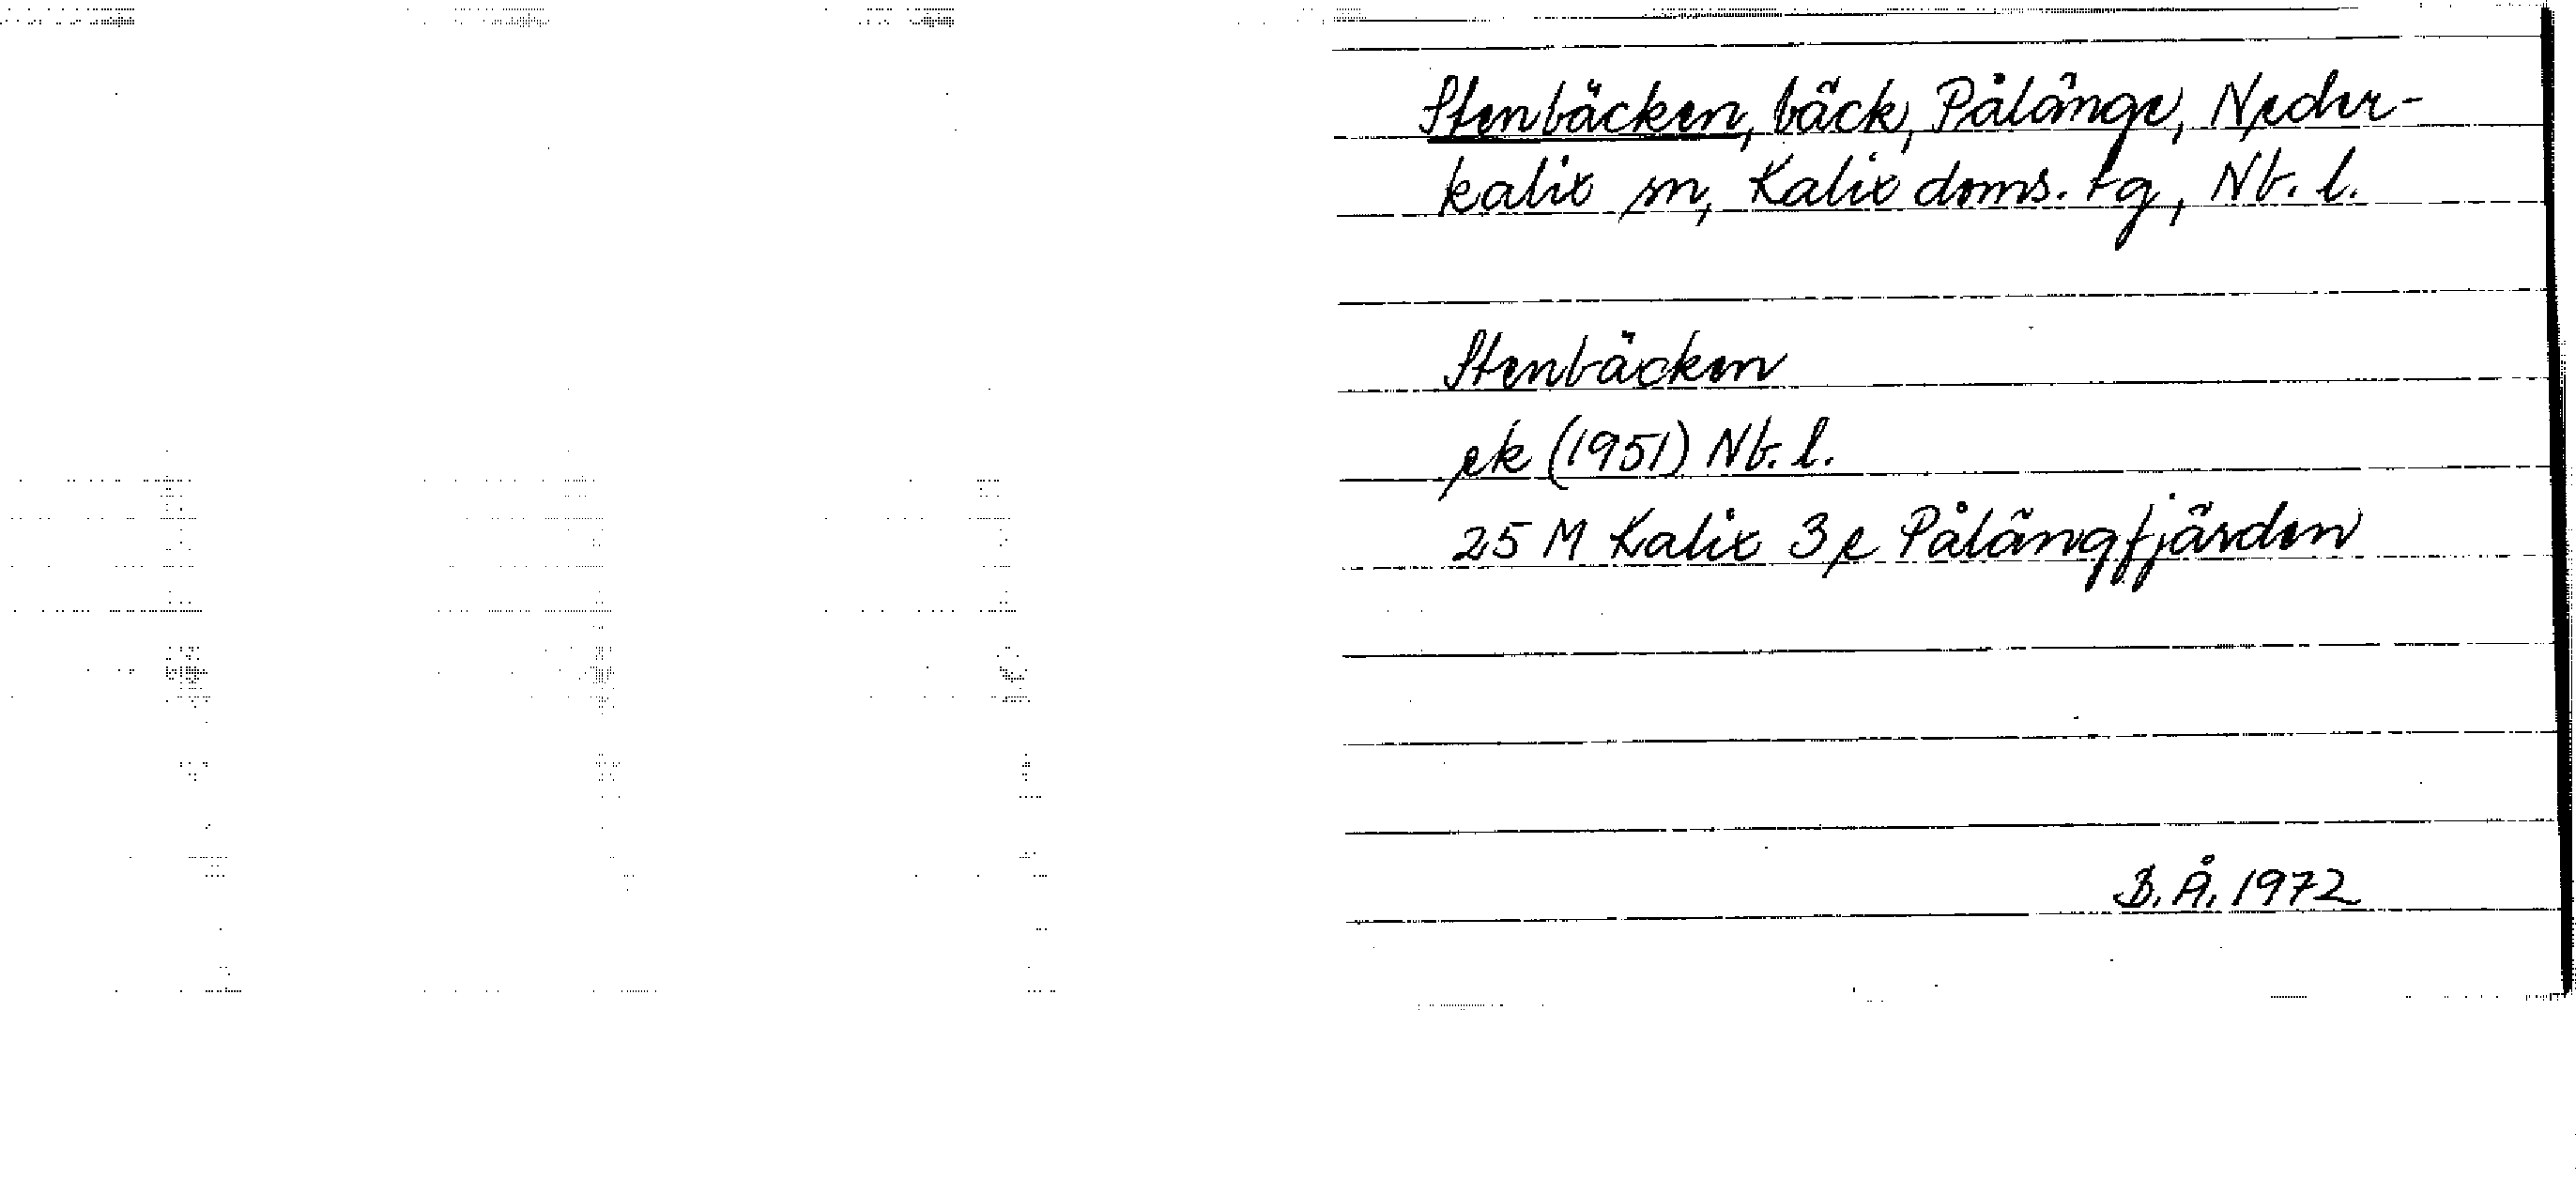 Stenbäcken, bäck, Pålänge, Neder-
kalix sn, Kalix doms. tg, Nb. l.
Stenbäcken
ek (1951) Nb. l.
25 M Kalix 3 e Pålängfjärden
B. Å. 1972